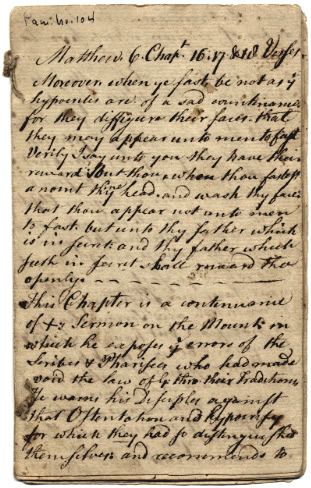 Matthew 6. Chapt. 16. 17 & 18 Verses
Moreover when ye fast be not as ye
hypocrites are of a sad countinance
for they disfigure their faces that
they may appear unto men to fast
Verily I say unto you they have their
reward but thou when thou fastest
anoint thy head and wash thy face
that thou appear not unto men
to fast but unto thy father which
is in secret and thy father which
seeth in secret shall reward thee
openly
This Chapter is a continuance
of ye Sermon on the Mount in
which he exposes ye errors of the
Scribes & Pharisees who had made
void the law of G thro their Traditions
He warns his disciples against
that Ostentation and hypocrisy
for which they had so distinguished
themselves and recommends to